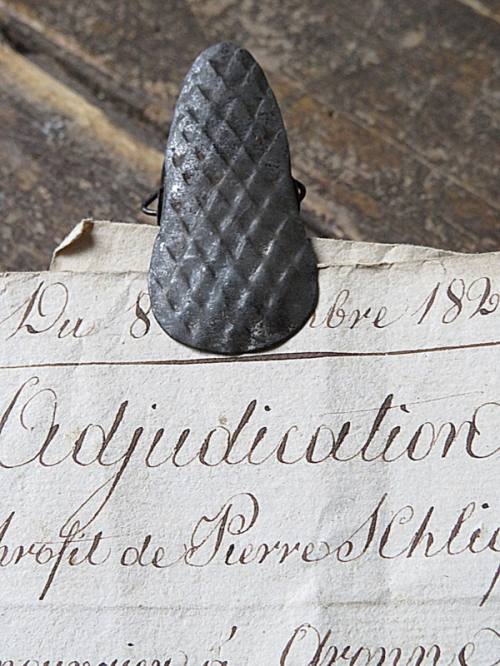 Du 8 bre 182
Adjudication
profit de Pierre Schli
à